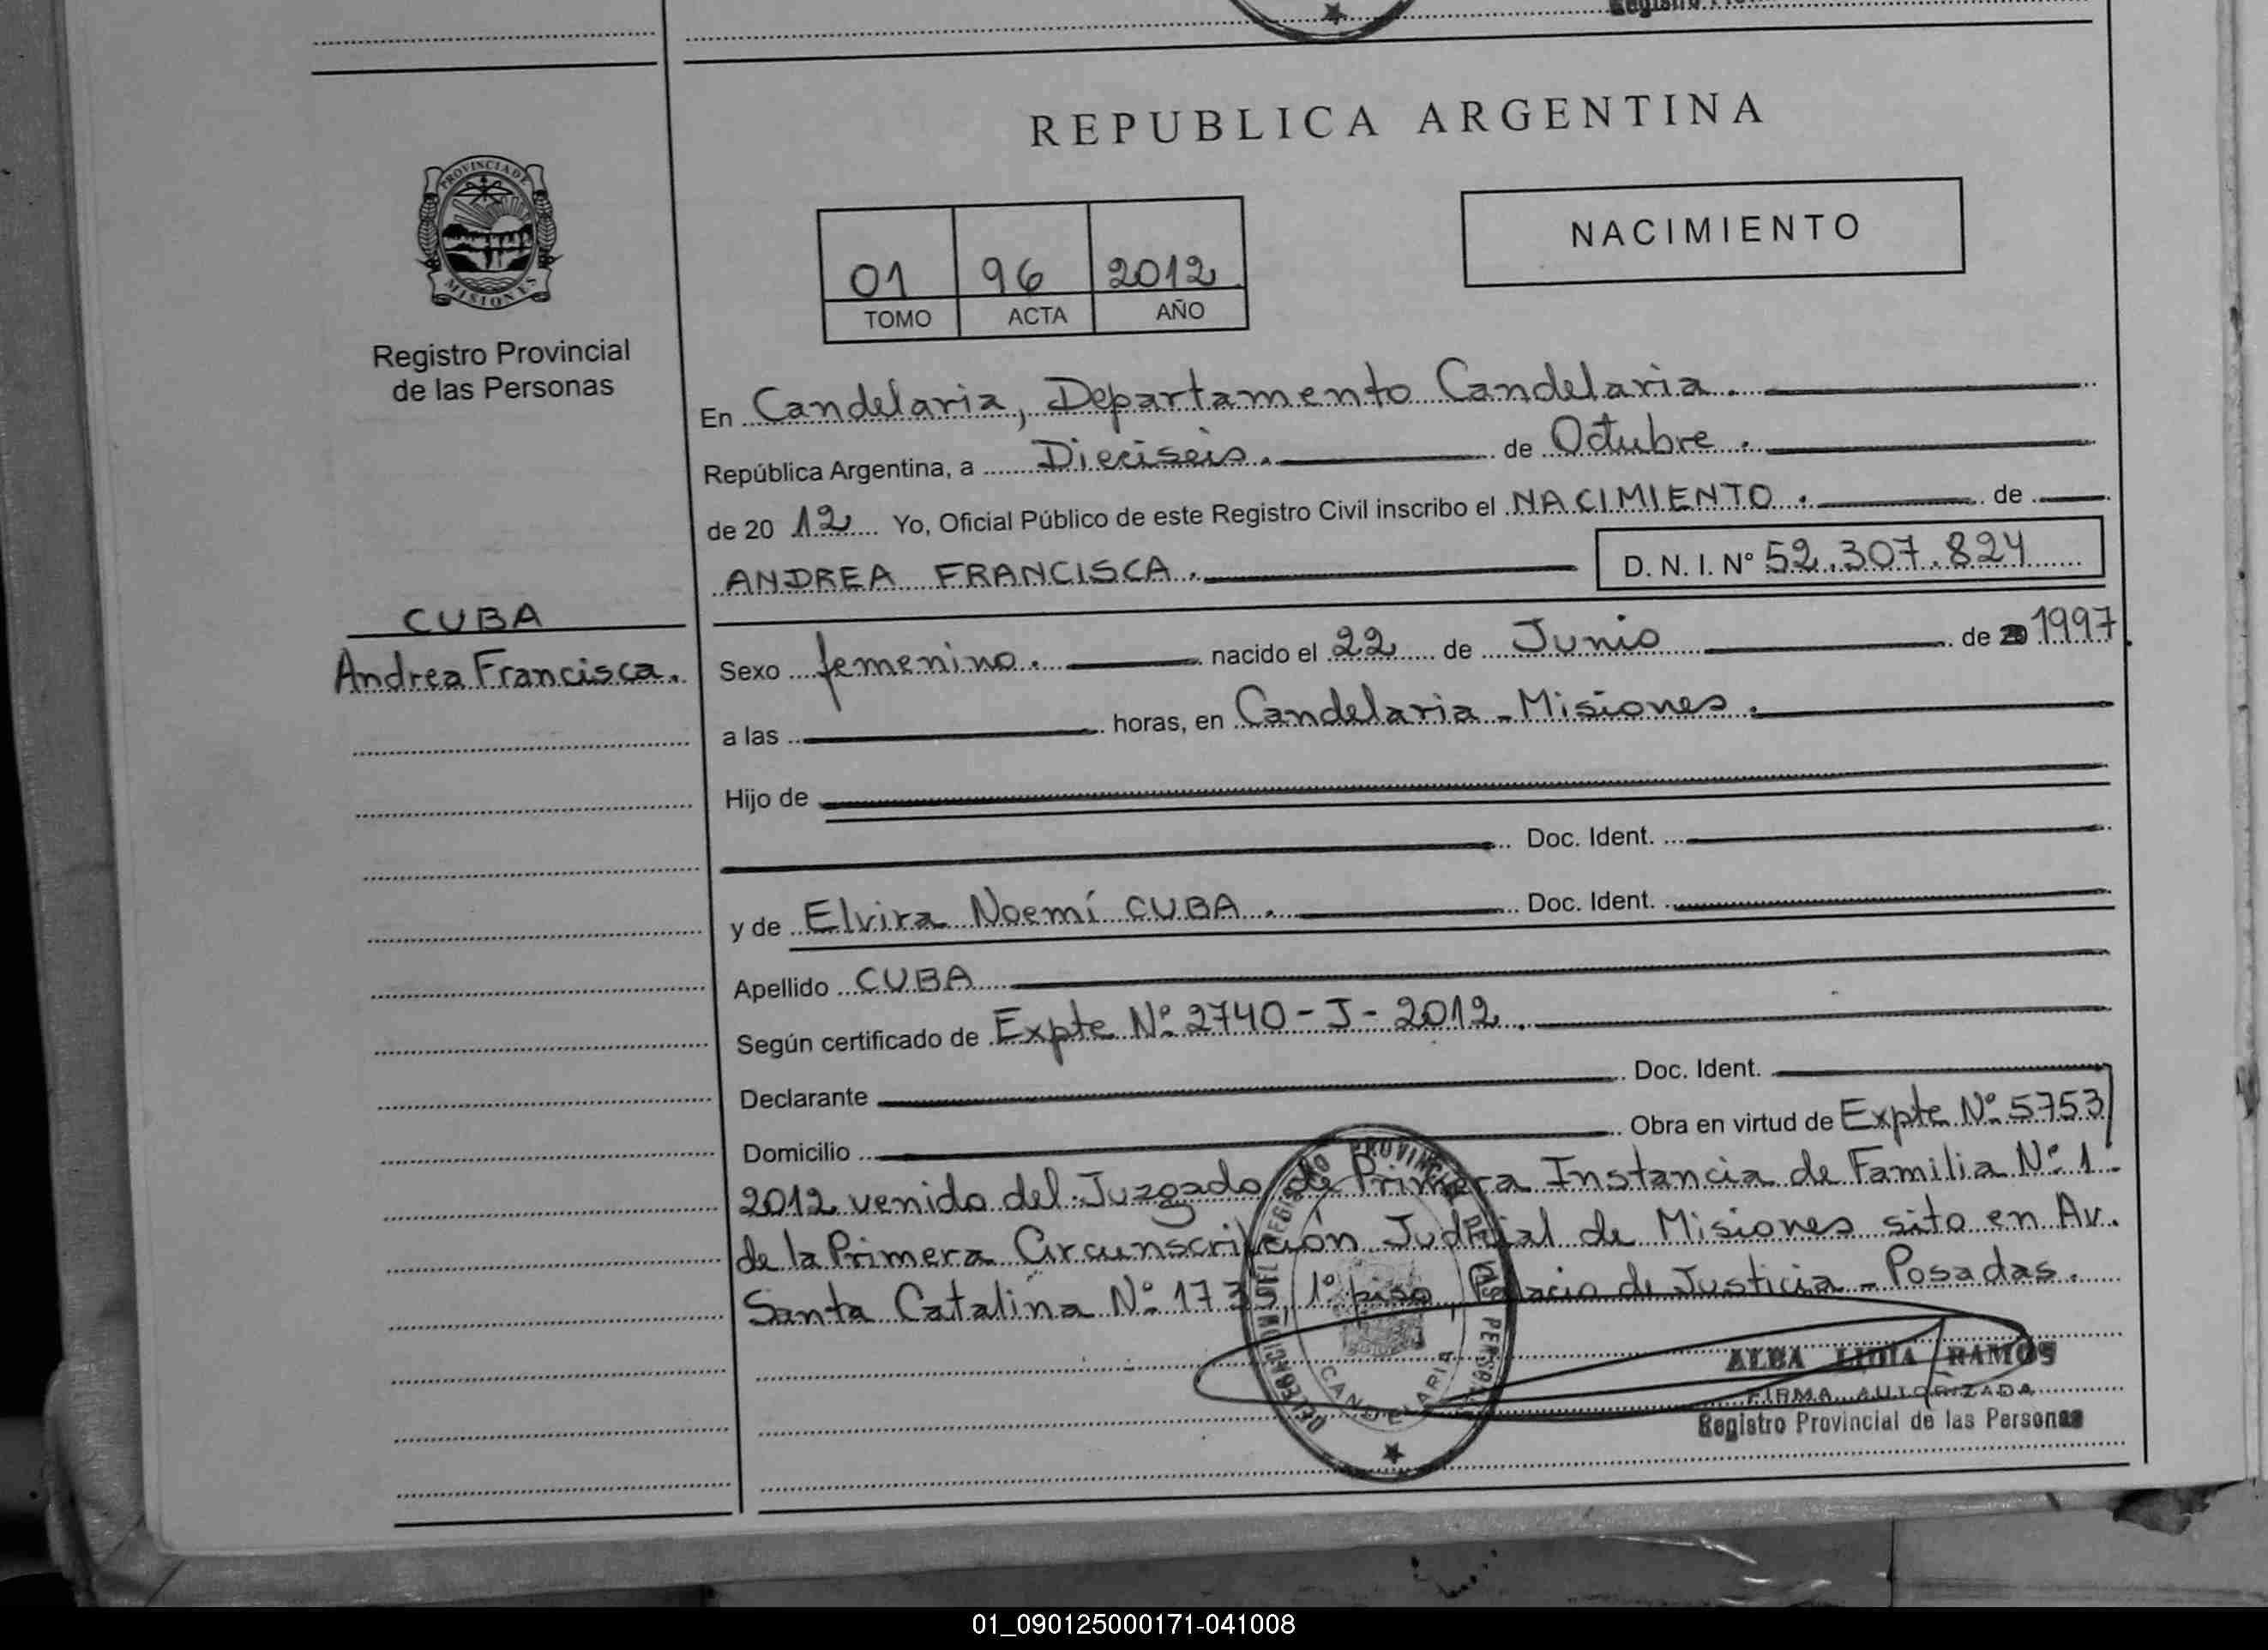 REPUBLICA ARGENTINA
PROVINCIA DE
MISIONES
Registro Provincial
de las Personas
NACIMIENTO
01 96 2012
TOMO ACTA AÑO
En Candelaria, Departamento Candelaria.
República Argentina, a Dieciseis. de Octubre.
de 20 12 Yo, Oficial Público de este Registro Civil inscribo el NACIMIENTO. de
ANDREA FRANCISCA. D. N. I. Nº 52.307.824
CUBA
Andrea Francisca.
Sexo femenino. nacido el 22 de Junio de 20 1997.
a las horas, en Candelaria - Misiones.
Hijo de
Doc. Ident.
y de Elvira Noemí CUBA. Doc. Ident.
Apellido CUBA
Según certificado de Expte Nº 2740-J-2012.
Declarante Doc. Ident.
Domicilio Obra en virtud de Expte Nº 5753/
2012 venido del Juzgado de Primera Instancia de Familia Nº 1
de la Primera Circunscripción Judicial de Misiones sito en Av.
Santa Catalina Nº 1735, 1º piso, Palacio de Justicia - Posadas.
CANDELARIA
ALBA LIDIA RAMOS
FIRMA AUTORIZADA
Registro Provincial de las Personas
01_090125000171-041008